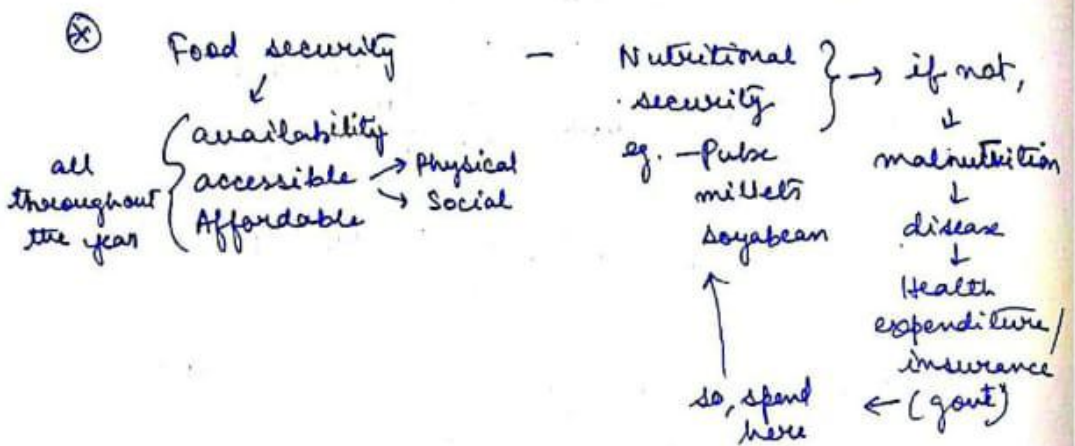 Food security - Nutritional security } → if not,
↓
all throughout the year { availability
accessible → Physical
→ Social
Affordable
eg. - Pulse
millets
soyabean
↓
malnutrition
↓
disease
↓
Health
expenditure/
insurance
(govt)
← so, spend
here
↑